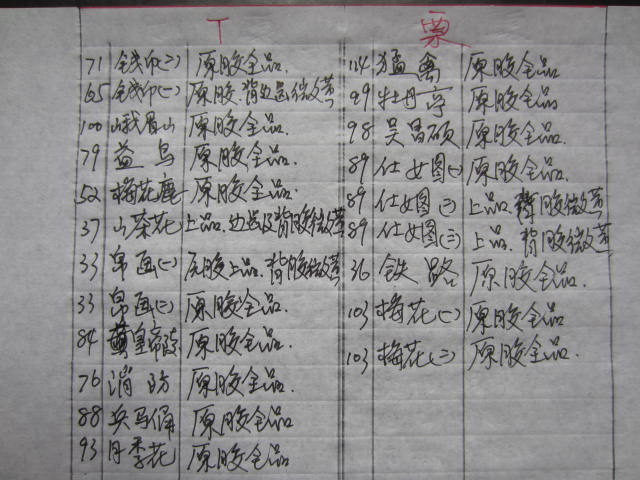 T 票
71 钱币(二) 原胶全品.
65 钱币(一) 原胶.背边齿微黄
100 峨眉山 原胶全品.
79 益鸟 原胶全品.
52 梅花鹿 原胶全品.
37 山茶花 上品.边齿及背胶微黄
33 帛画(一) 原胶上品.背胶微黄
33 帛画(二) 原胶全品.
84 黄皇帝陵 原胶全品.
76 消防 原胶全品.
88 兵马俑 原胶全品
93 月季花 原胶全品
114 猛禽 原胶全品
99 牡丹亭 原胶全品.
98 吴昌硕 原胶全品.
89 仕女图(一) 原胶全品
89 仕女图(二) 上品.背胶微黄
89 仕女图(三) 上品.背胶微黄
36 铁路 原胶全品.
103 梅花(一) 原胶全品
103 梅花(二) 原胶全品.